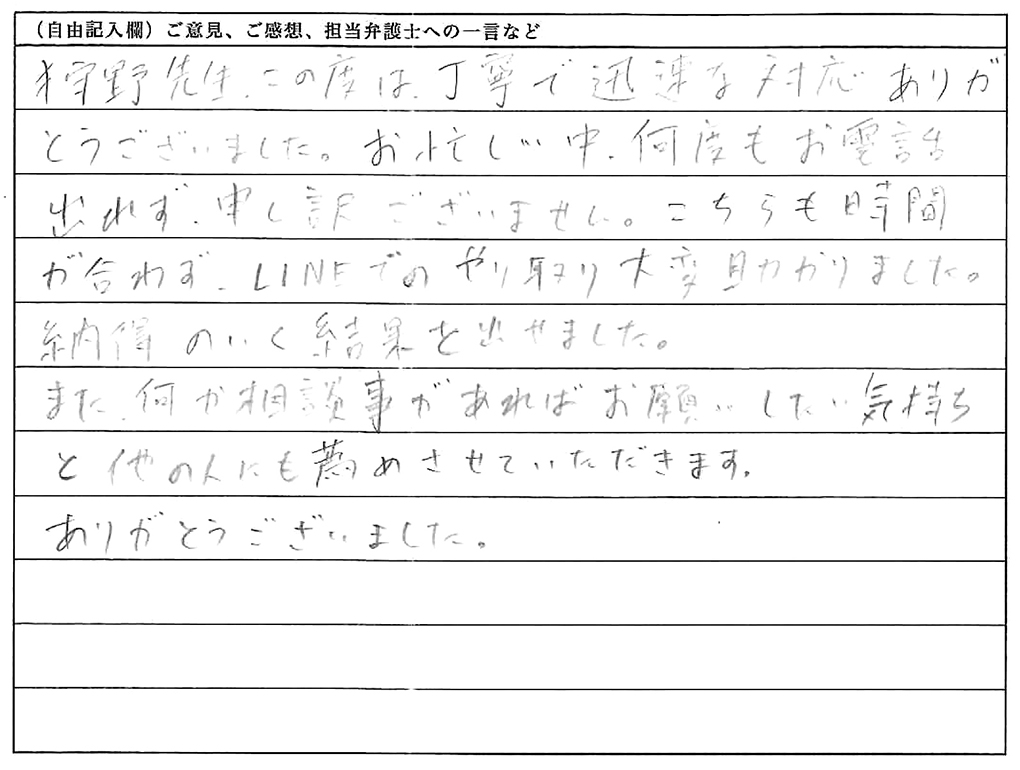 （自由記入欄）ご意見、ご感想、担当弁護士への一言など
狩野先生、この度は、丁寧で迅速な対応ありが
とうございました。お忙しい中、何度もお電話
出れず、申し訳ございません。こちらも時間
が合わず、LINEでのやり取り大変助かりました。
納得のいく結果を出せました。
また、何か相談事があればお願いしたい気持ち
と他の人にも薦めさせていただきます。
ありがとうございました。